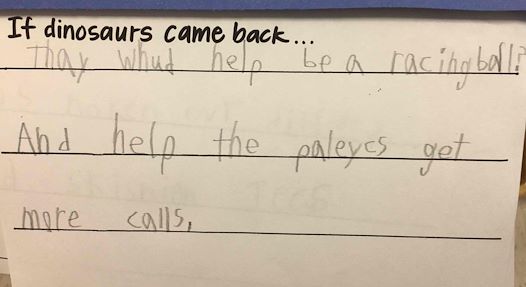 If dinosaurs came back...
thay whud help be a racingball?
And help the paleycs get
more calls,